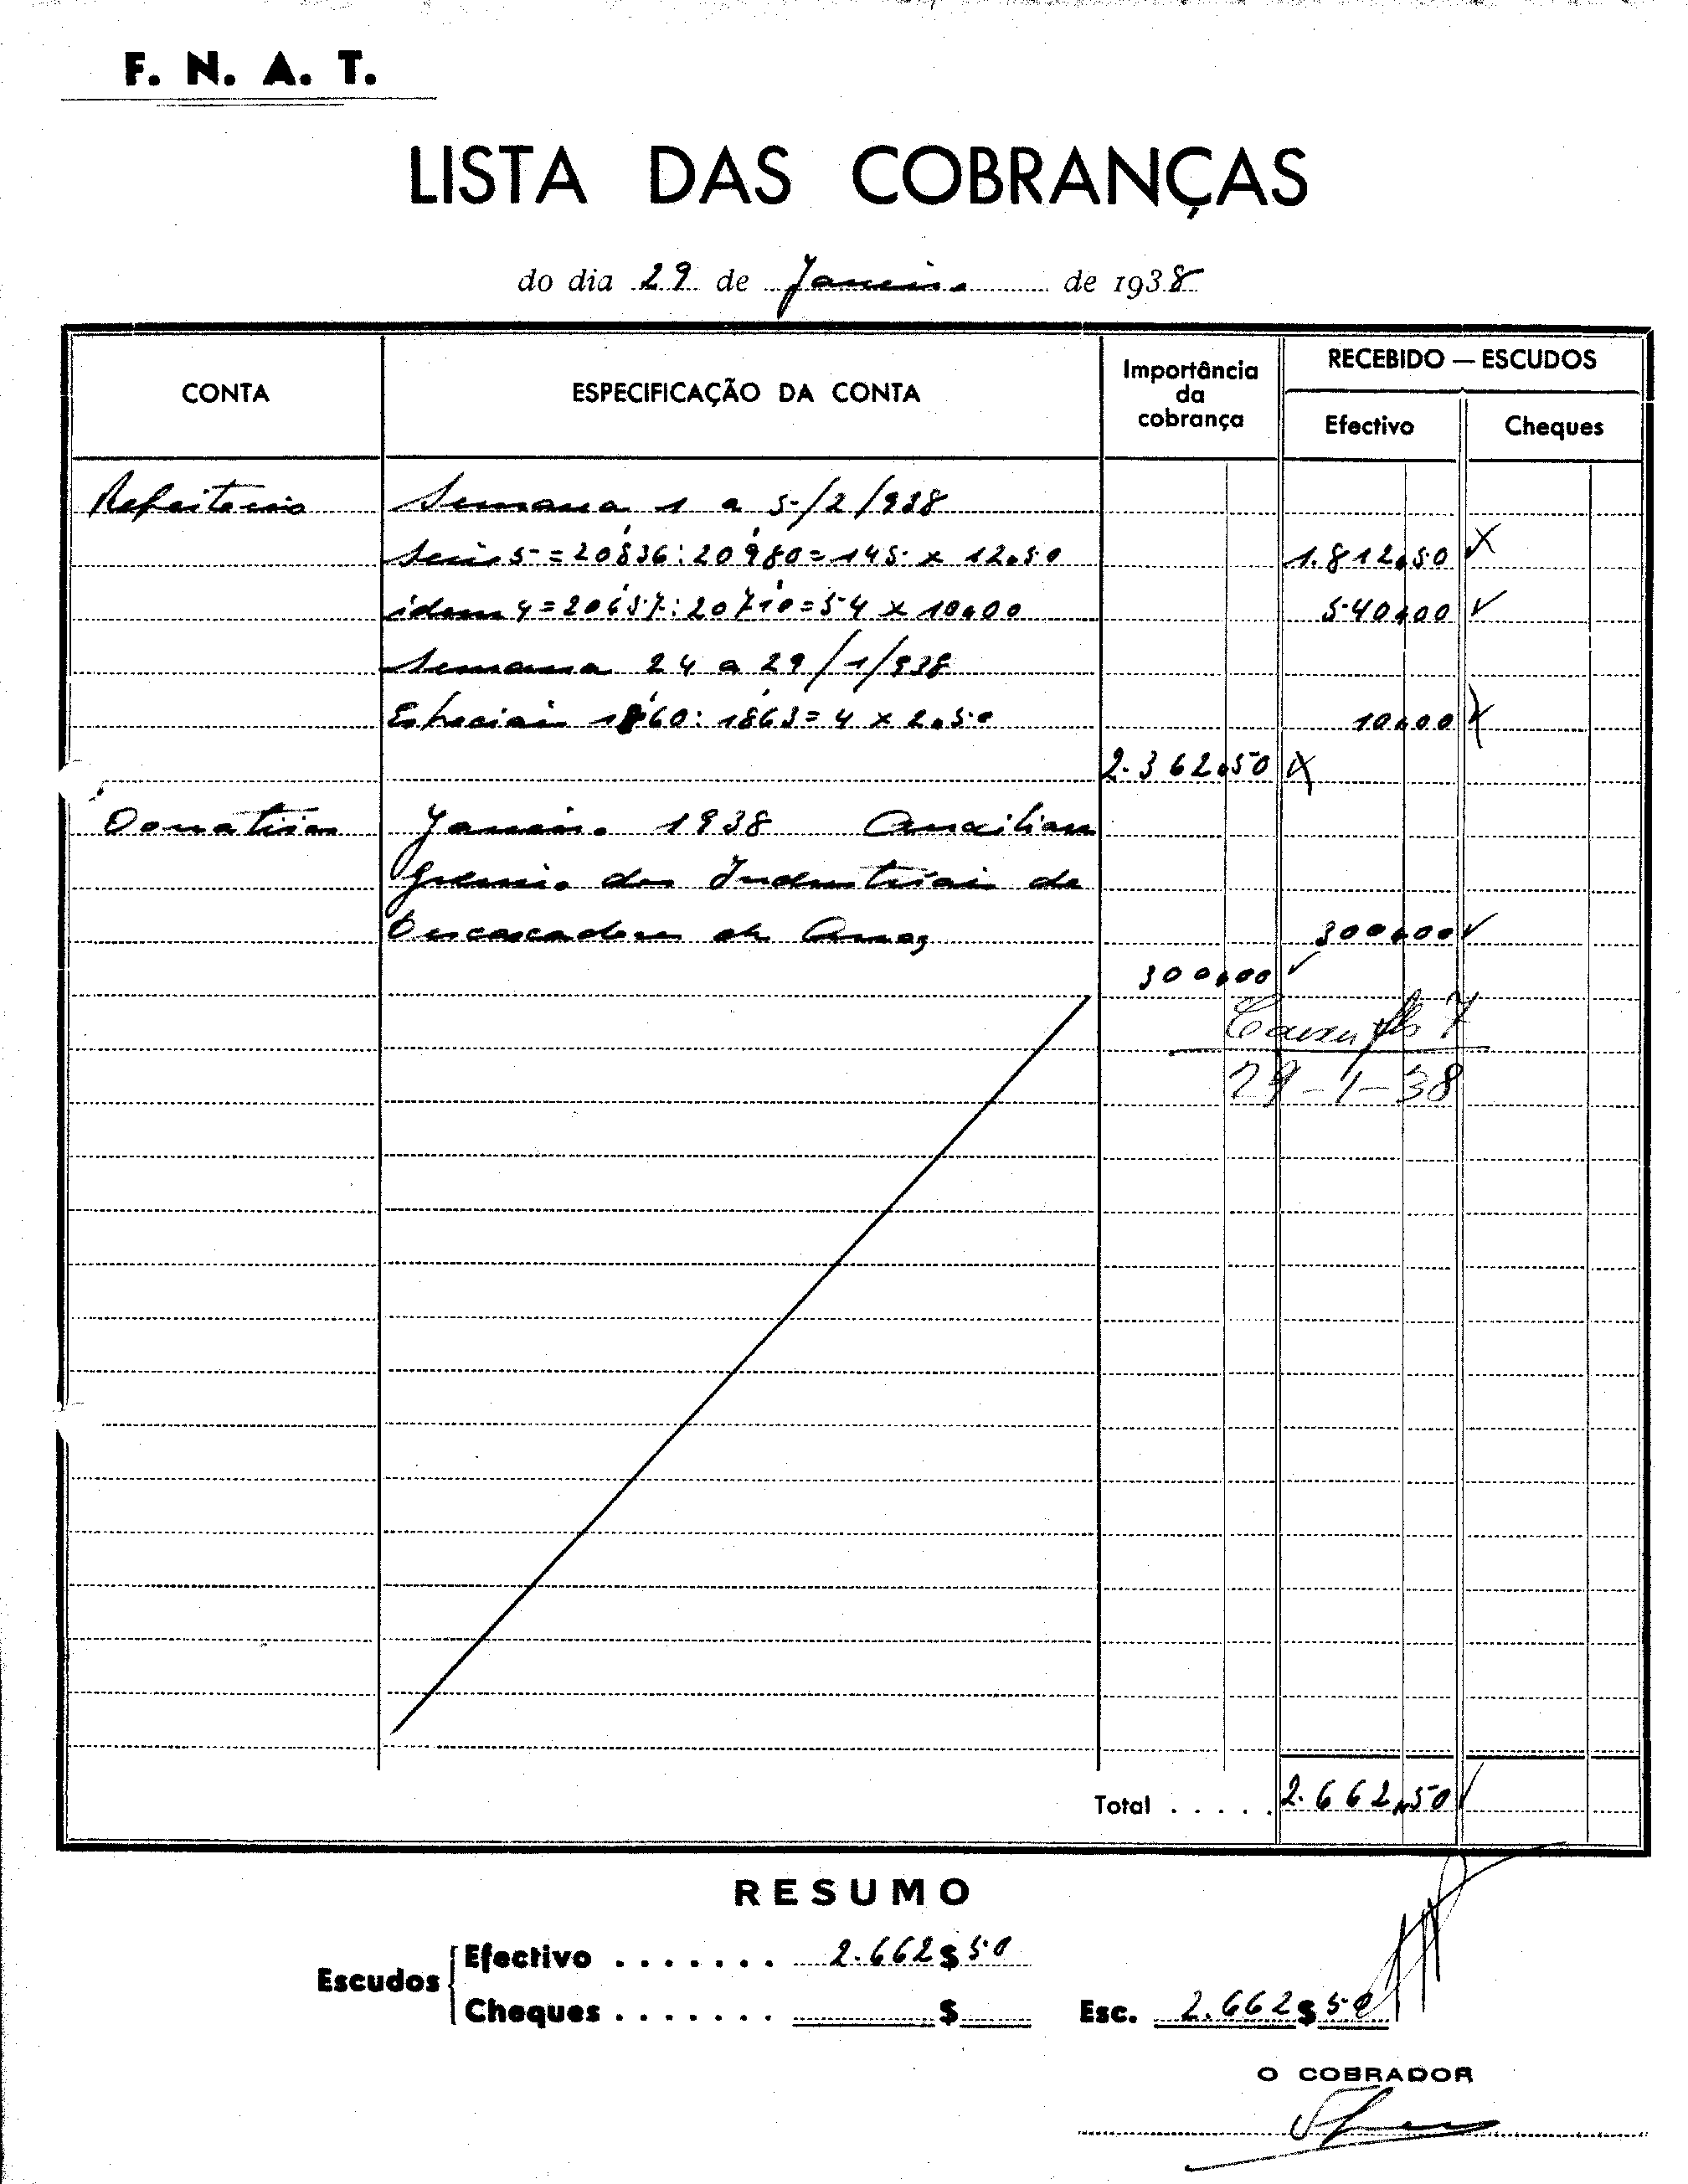 F. N. A. T.
LISTA DAS COBRANÇAS
do dia 29 de Janeiro de 1938
CONTA
ESPECIFICAÇÃO DA CONTA
Importância da cobrança
RECEBIDO — ESCUDOS
Efectivo
Cheques
Refeitorio Semana 1 a 5/2/938
Seis 5 = 20836 : 20980 = 145 x 12$50 1.812$50
idem 4 = 20657 : 20710 = 54 x 10$00 540$00
Semana 24 a 29/1/938
Especiais 1860 : 1863 = 4 x 2$50 10$00
2.362$50
Donativos Janeiro 1938
Gremio dos Industriais de
Descascadores de Arroz 300$00
300$00
29-1-38
Total . . . . . 2.662$50
RESUMO
Escudos
Efectivo . . . . . . . 2.662$50
Cheques . . . . . . . $
Esc. 2.662$50
O COBRADOR